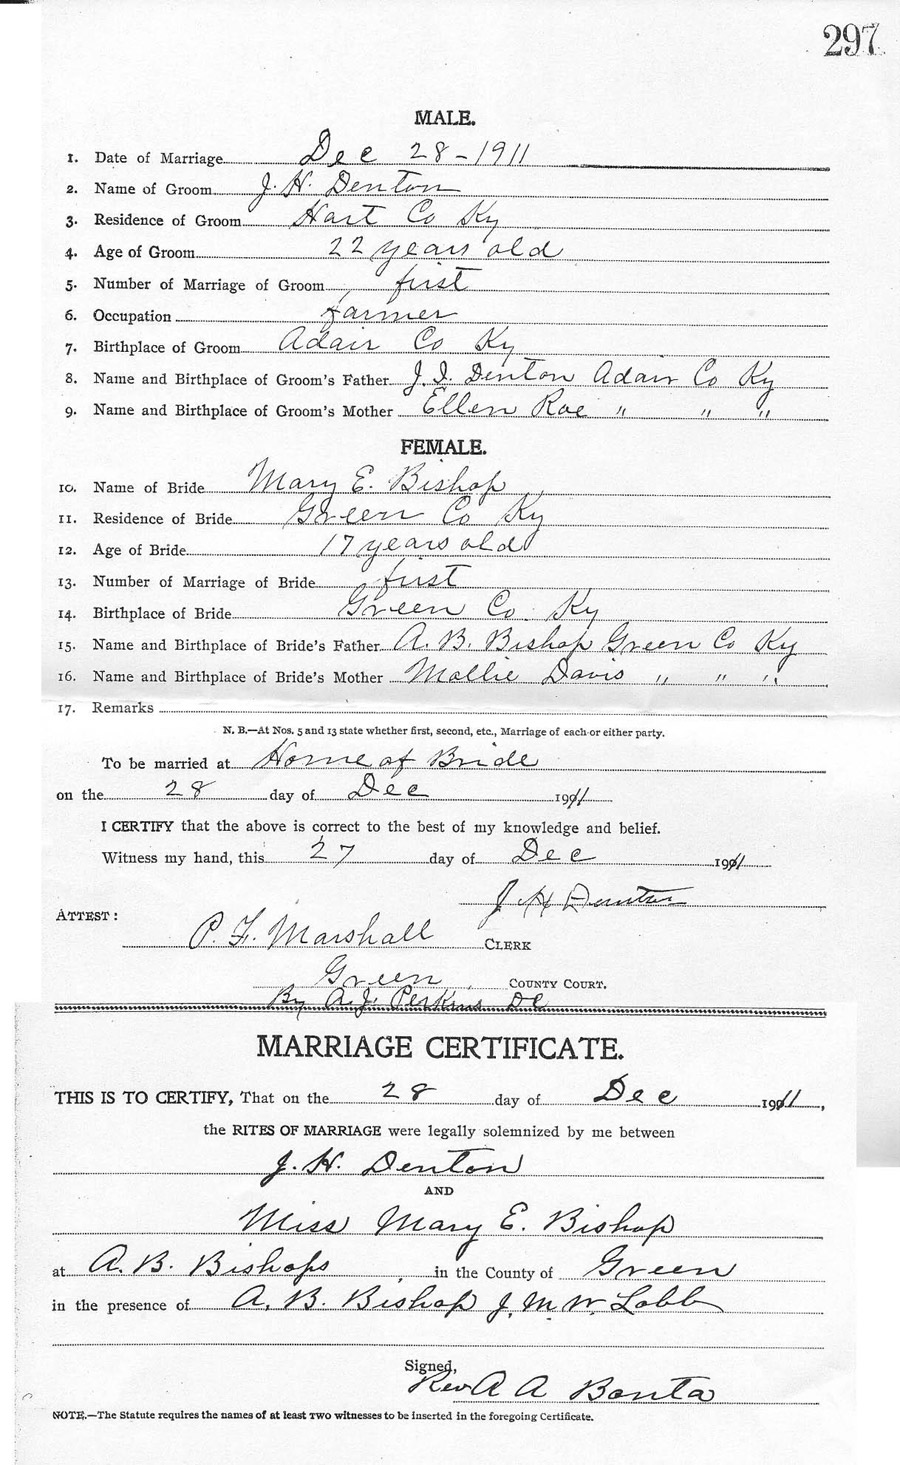 297
MALE.
1. Date of Marriage Dec 28-1911
2. Name of Groom J. H. Denton
3. Residence of Groom Hart Co Ky
4. Age of Groom 22 years old
5. Number of Marriage of Groom first
6. Occupation farmer
7. Birthplace of Groom Adair Co Ky
8. Name and Birthplace of Groom's Father J. I. Denton Adair Co Ky
9. Name and Birthplace of Groom's Mother Ellen Roe " " "
FEMALE.
10. Name of Bride Mary E. Bishop
11. Residence of Bride Green Co Ky
12. Age of Bride 17 years old
13. Number of Marriage of Bride first
14. Birthplace of Bride Green Co. Ky
15. Name and Birthplace of Bride's Father A. B. Bishop Green Co Ky
16. Name and Birthplace of Bride's Mother Mollie Davis " " "
17. Remarks
N. B.—At Nos. 5 and 13 state whether first, second, etc., Marriage of each or either party.
To be married at Home of Bride
on the 28 day of Dec 1911
I CERTIFY that the above is correct to the best of my knowledge and belief.
Witness my hand, this 27 day of Dec 1911
J H Denton
ATTEST:
P. F. Marshall CLERK
Green COUNTY COURT.
By A. J. Perkins DC
MARRIAGE CERTIFICATE.
THIS IS TO CERTIFY, That on the 28 day of Dec 1911,
the RITES OF MARRIAGE were legally solemnized by me between
J. H. Denton
AND
Miss Mary E. Bishop
at A. B. Bishops in the County of Green
in the presence of A. B. Bishop J. M. W. Lobb
Signed,
Rev A A Bonta
NOTE.—The Statute requires the names of at least TWO witnesses to be inserted in the foregoing Certificate.